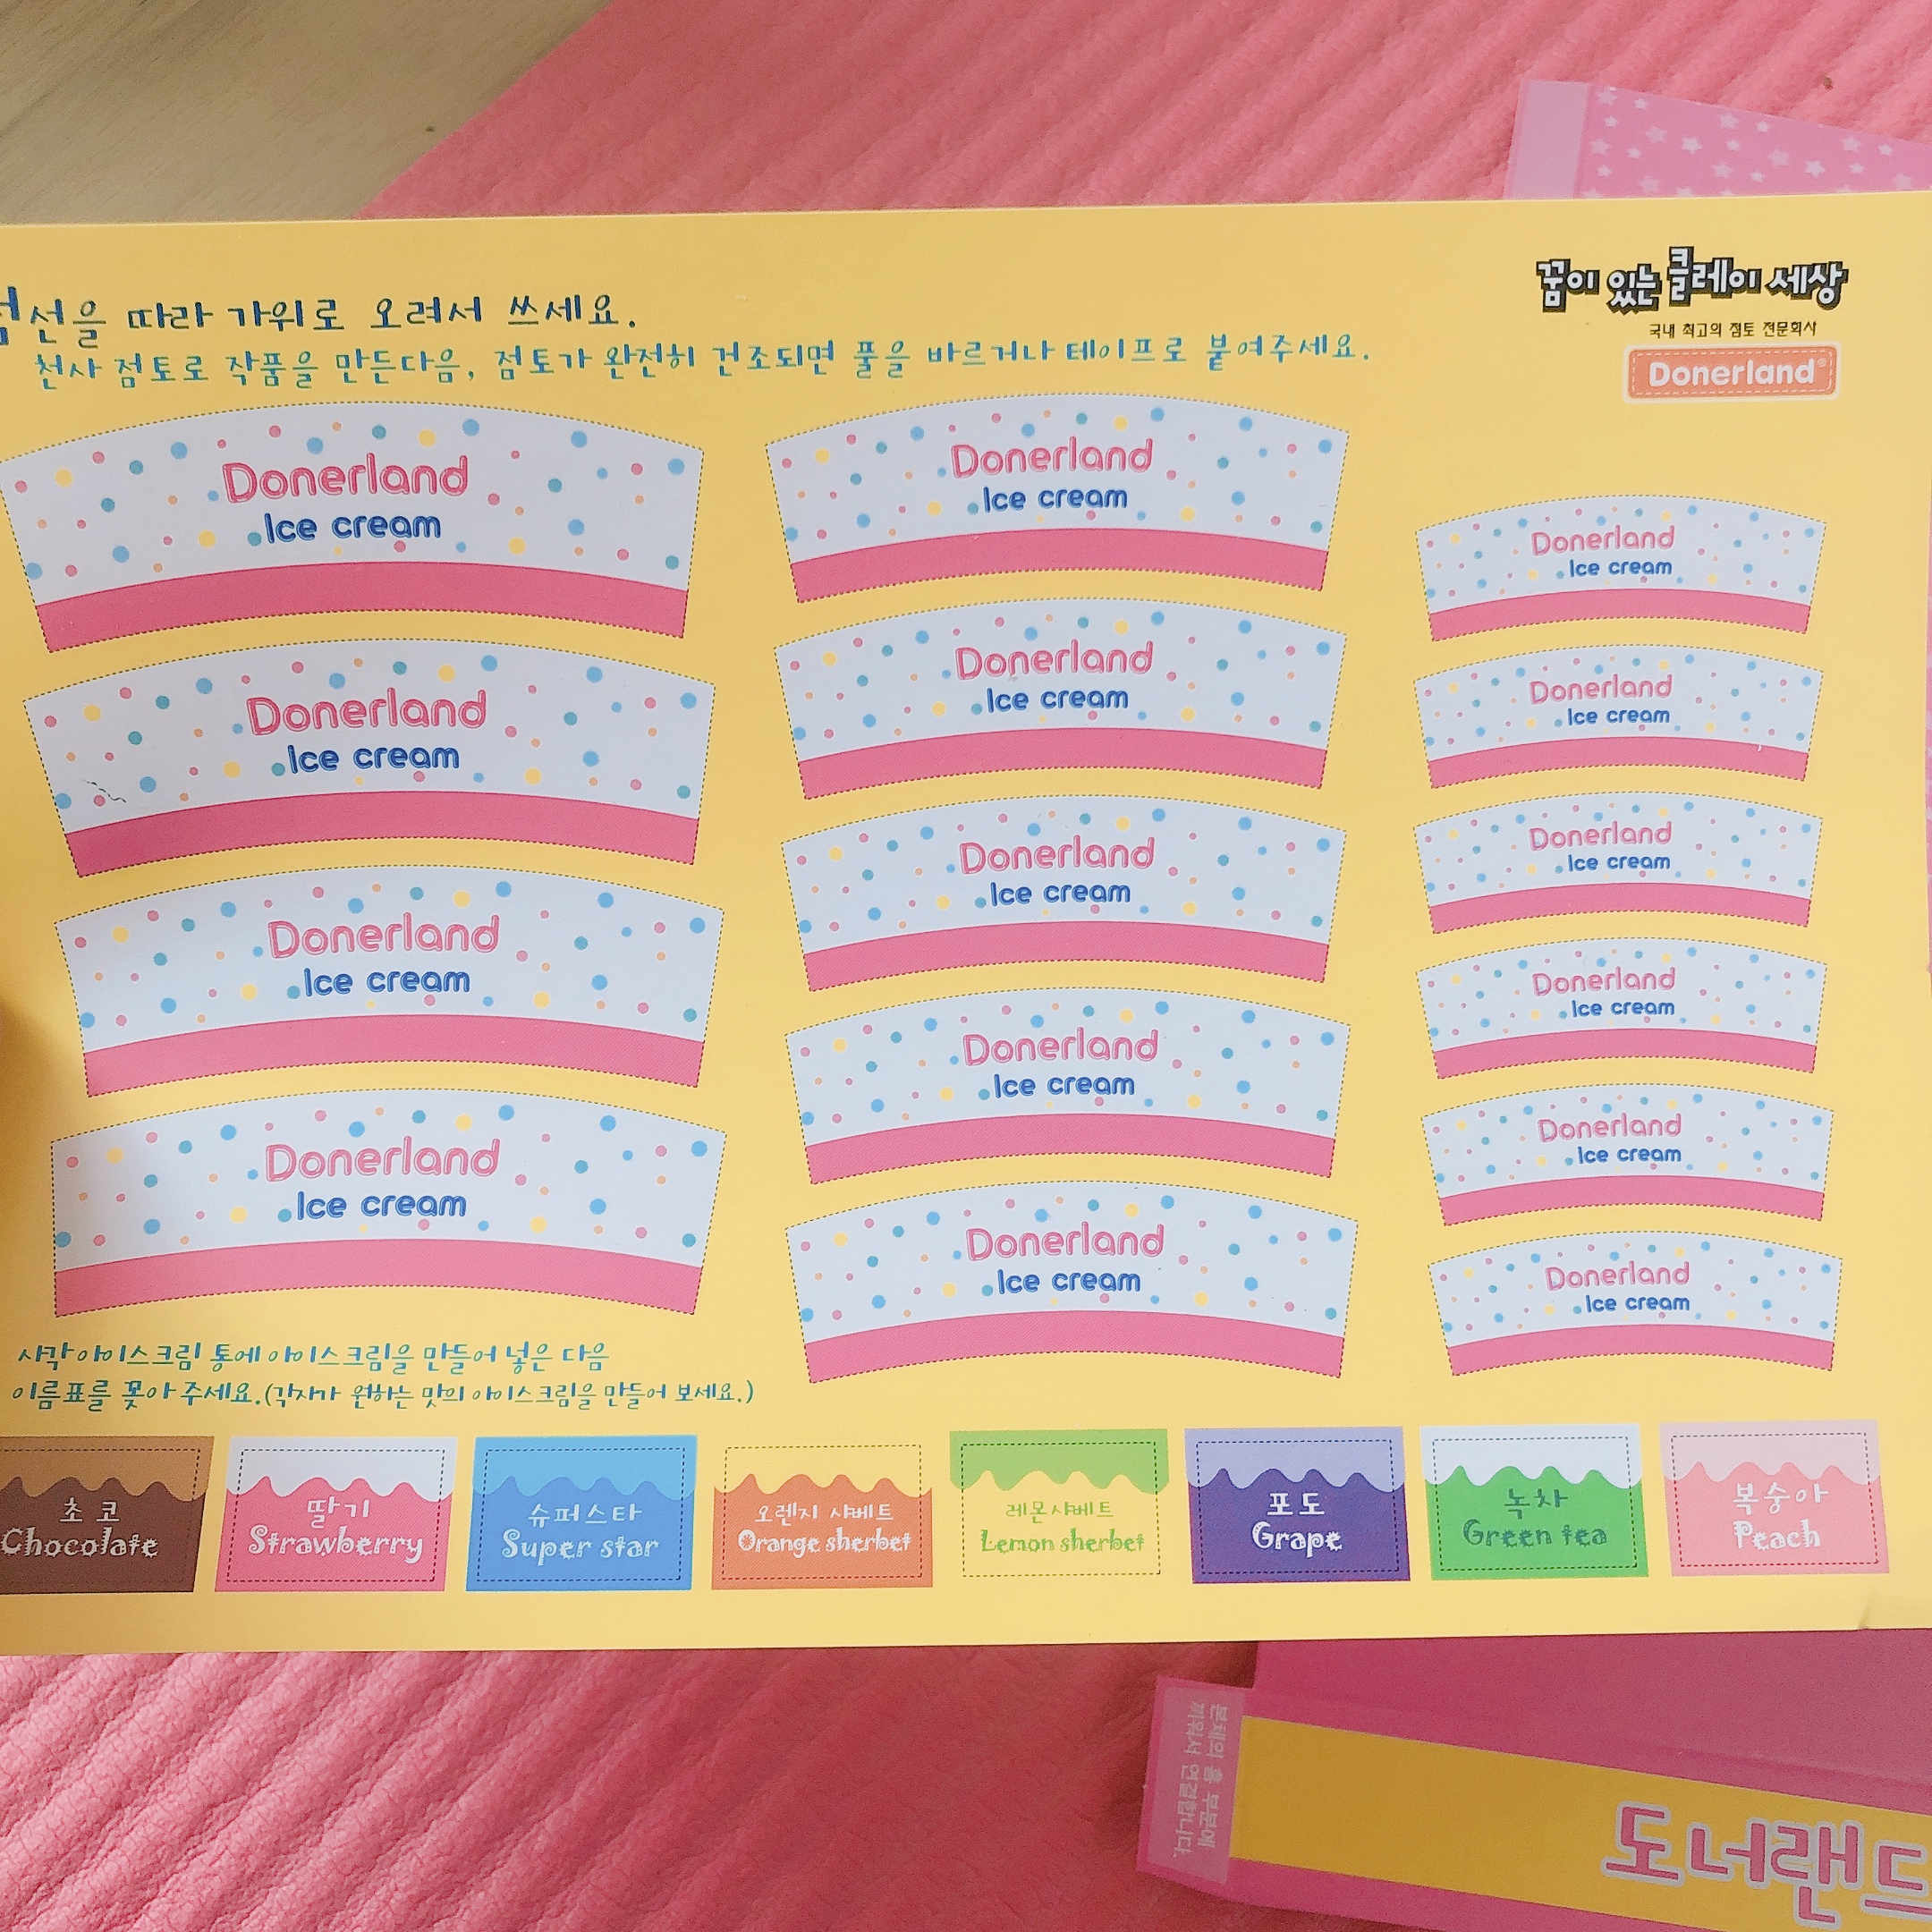 점선을 따라 가위로 오려서 쓰세요.
천사 점토로 작품을 만든다음, 점토가 완전히 건조되면 풀을 바르거나 테이프로 붙여주세요.
꿈이 있는 클레이 세상
국내 최고의 점토 전문회사
Donerland
Donerland
Ice cream
Donerland
Ice cream
Donerland
Ice cream
Donerland
Ice cream
Donerland
Ice cream
Donerland
Ice cream
Donerland
Ice cream
Donerland
Ice cream
Donerland
Ice cream
Donerland
Ice cream
Donerland
Ice cream
Donerland
Ice cream
Donerland
Ice cream
Donerland
Ice cream
Donerland
Ice cream
사각아이스크림 통에 아이스크림을 만들어 넣은 다음
이름표를 꽂아 주세요.(각자가 원하는 맛의 아이스크림을 만들어 보세요.)
초코
Chocolate
딸기
Strawberry
슈퍼스타
Super star
오렌지 샤베트
Orange sherbet
레몬샤베트
Lemon sherbet
포도
Grape
녹차
Green tea
복숭아
Peach
본체의 홈 부분에
끼워서 연결합니다.
도너랜드